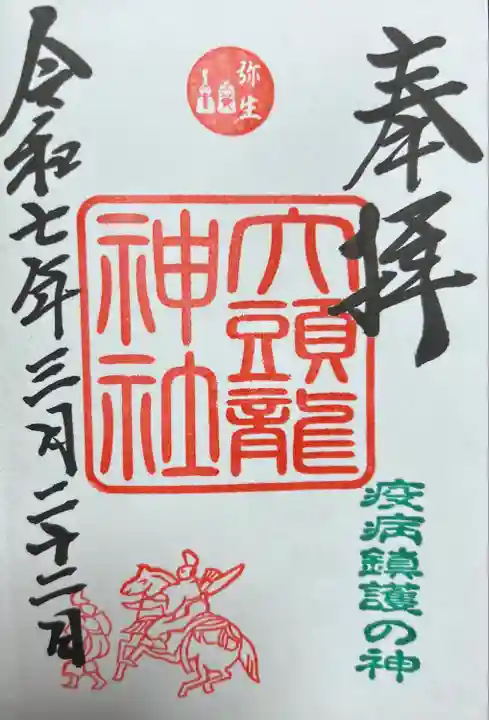 奉拝
弥生
六頭龍
神社
令和七年三月二十二日
疫病鎮護の神